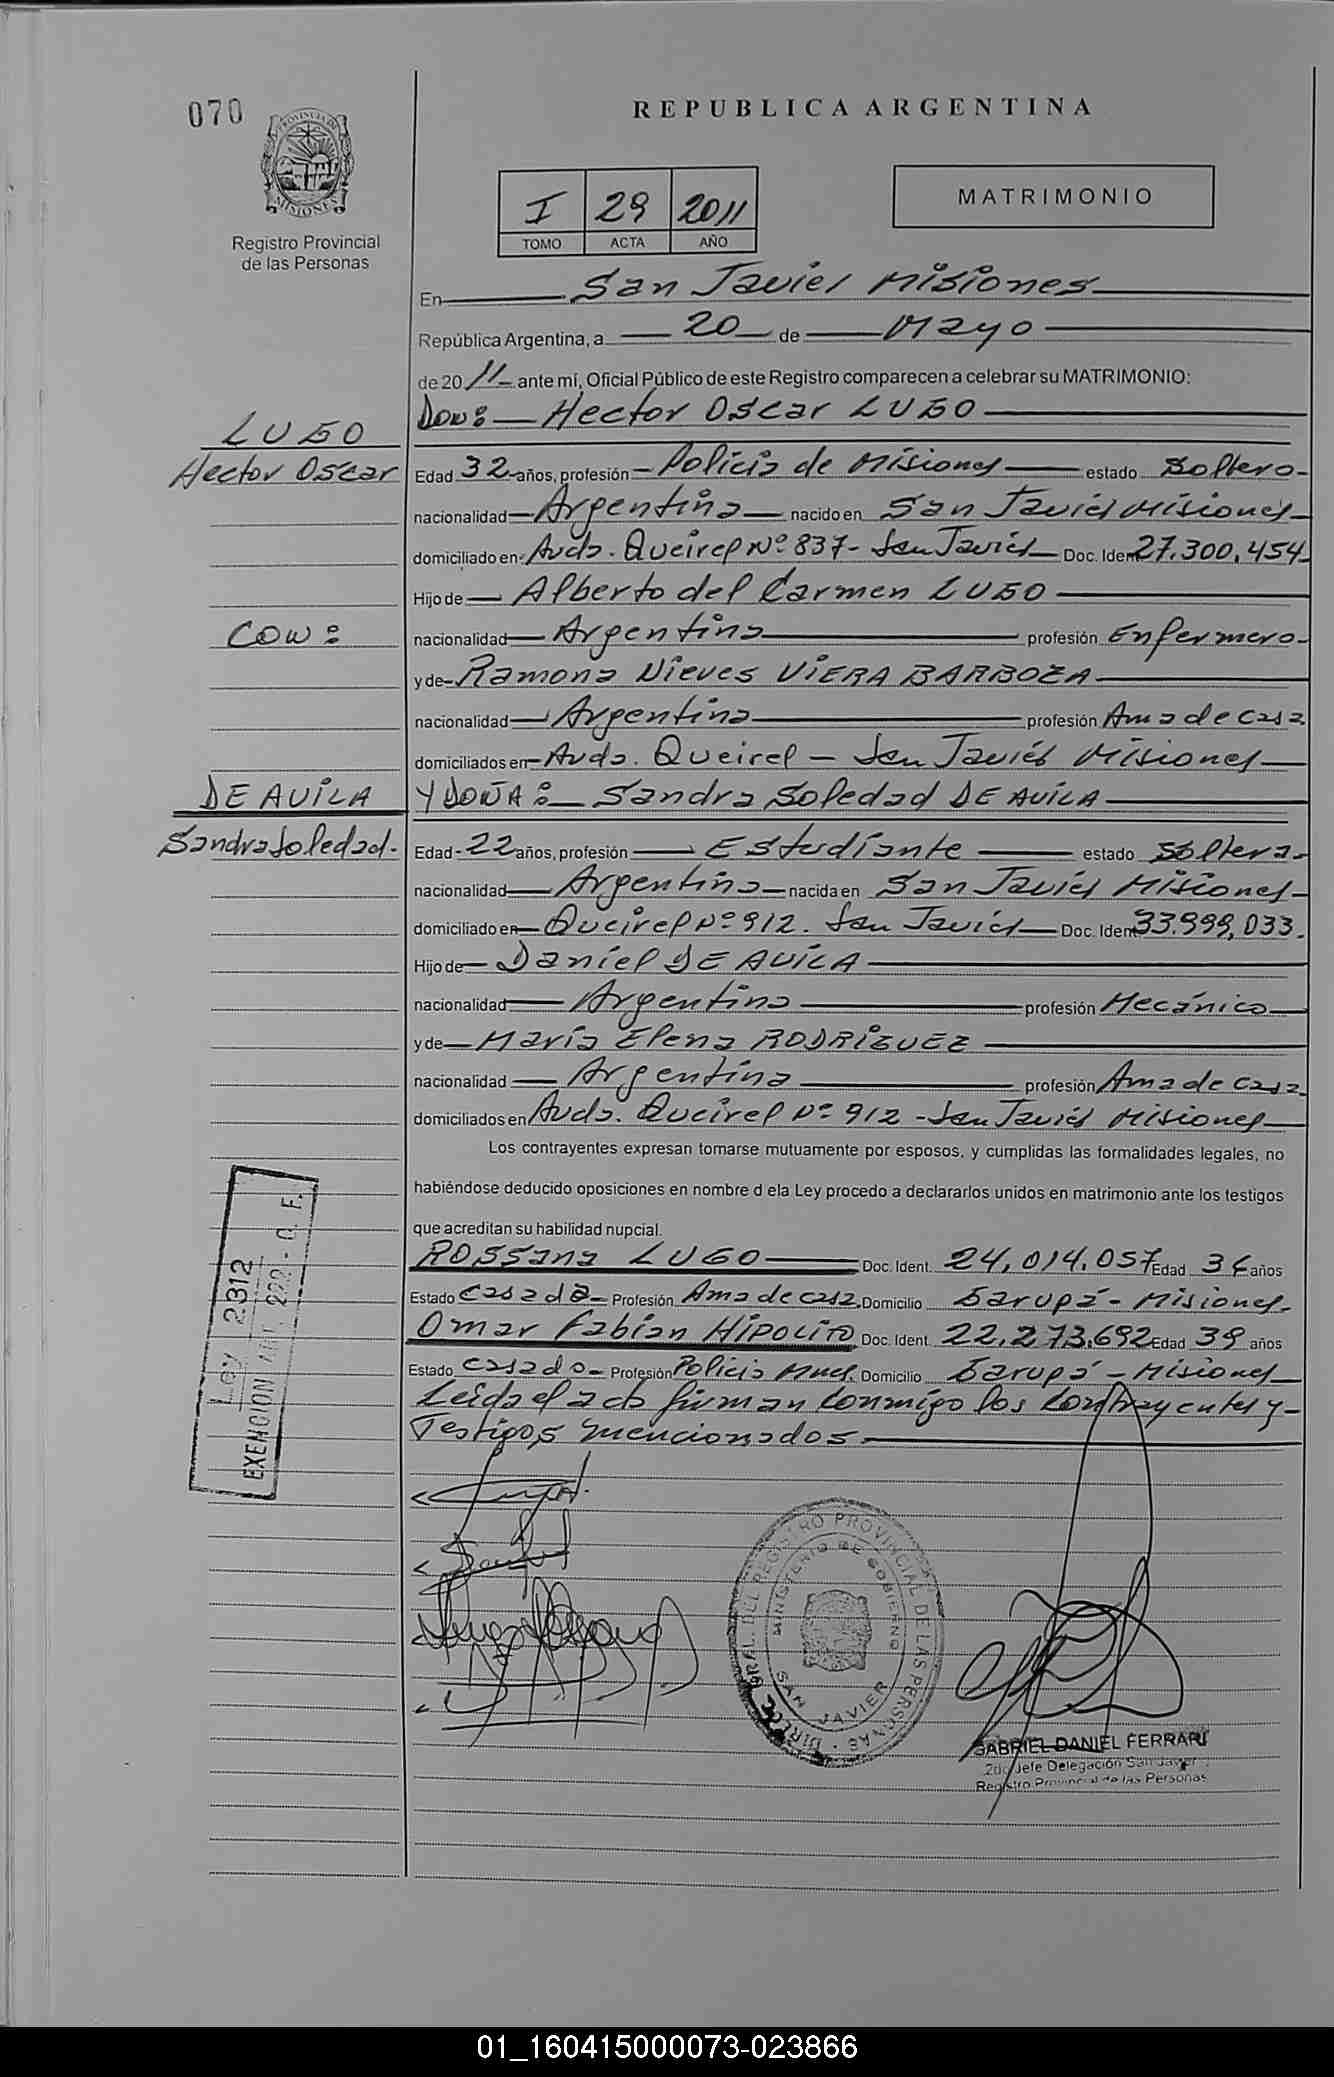 070
PROVINCIA DE
MISIONES
Registro Provincial
de las Personas
REPUBLICA ARGENTINA
I 29 2011
TOMO ACTA AÑO
MATRIMONIO
En San Javier Misiones
República Argentina, a 20 de Mayo
de 2011 ante mí, Oficial Público de este Registro comparecen a celebrar su MATRIMONIO:
LUGO
Hector Oscar
CON:
DE AVILA
Sandra Soledad.
Don: Hector Oscar LUGO
Edad 32 años, profesión Policía de Misiones estado Soltero
nacionalidad Argentina nacido en San Javier Misiones
domiciliado en Avda. Queirel Nº 837 - San Javier Doc. Ident. 27.300.454
Hijo de Alberto del Carmen LUGO
nacionalidad Argentina profesión Enfermero
y de Ramona Nieves VIERA BARBOZA
nacionalidad Argentina profesión Ama de casa
domiciliados en Avda. Queirel - San Javier Misiones
Y DOÑA: Sandra Soledad DE AVILA
Edad 22 años, profesión Estudiante estado Soltera
nacionalidad Argentina nacida en San Javier Misiones
domiciliado en Queirel Nº 912. San Javier Doc. Ident. 33.999.033.
Hijo de Daniel DE AVILA
nacionalidad Argentina profesión Mecánico
y de María Elena RODRIGUEZ
nacionalidad Argentina profesión Ama de casa
domiciliados en Avda. Queirel Nº 912 - San Javier Misiones
Los contrayentes expresan tomarse mutuamente por esposos, y cumplidas las formalidades legales, no
habiéndose deducido oposiciones en nombre d ela Ley procedo a declararlos unidos en matrimonio ante los testigos
que acreditan su habilidad nupcial.
ROSSana LUGO Doc. Ident. 24.014.057 Edad 36 años
Estado Casada Profesión Ama de casa Domicilio Garupá - Misiones
Omar Fabian HIPOLITO Doc. Ident. 22.273.692 Edad 39 años
Estado Casado Profesión Policía Domicilio Garupá - Misiones
Leida el acta firman conmigo los contrayentes y
Testigos mencionados.
Ley 2312
EXENCION
DIREC. GRAL. DEL REGISTRO PROVINCIAL DE LAS PERSONAS
MINISTERIO DE GOBIERNO
SAN JAVIER
GABRIEL DANIEL FERRARI
2do Jefe Delegación San Javier
Registro Provincial de las Personas
01_160415000073-023866